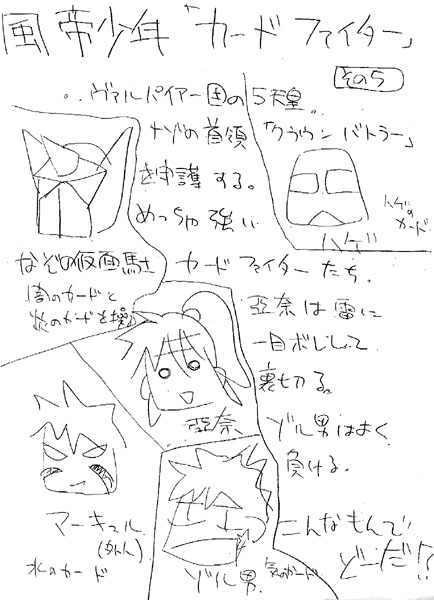 風帝少年「カードファイター」
その5
‥ヴァルパイアー国の5天皇。
ナゾの首領「クラウンバトラー」
を守護する。
めっちゃ強い
カードファイターたち。
ハゲのカード
ハゲ
なぞの仮面馬士
闇のカードと
炎のカードを操る
亜奈は雷に
一目ボレして
裏切る。
亜奈
ゾル男はよく
負ける。
マーキュル
水のカード
ゾル男
気のカード
こんなもんで
どーだ!?